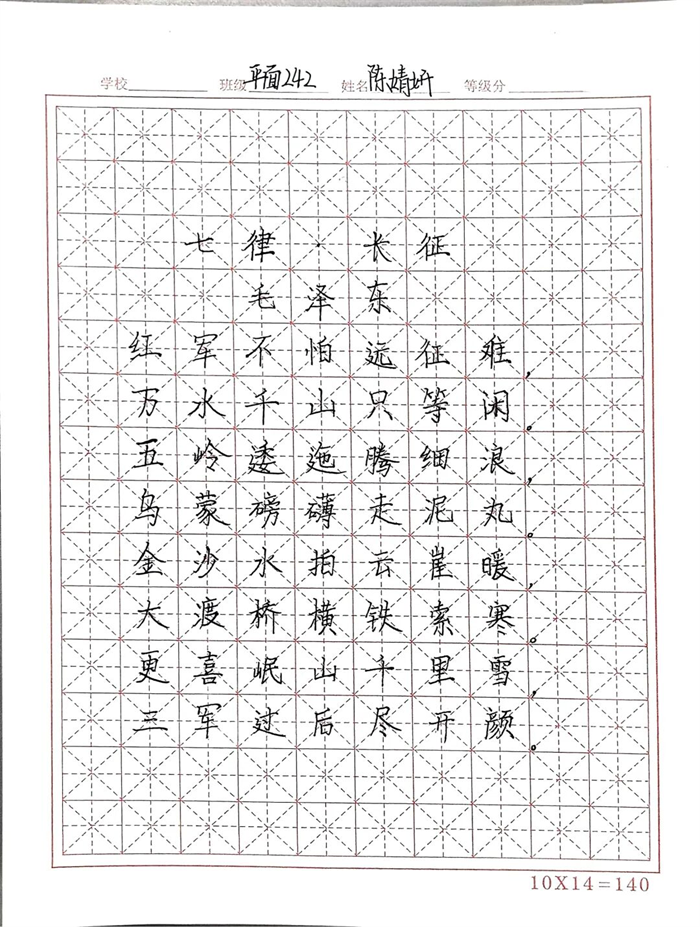 学校 班级 平面242 姓名 陈婧妍 等级分
七律·长征
毛泽东
红军不怕远征难，
万水千山只等闲。
五岭逶迤腾细浪，
乌蒙磅礴走泥丸。
金沙水拍云崖暖，
大渡桥横铁索寒。
更喜岷山千里雪，
三军过后尽开颜。
10X14=140